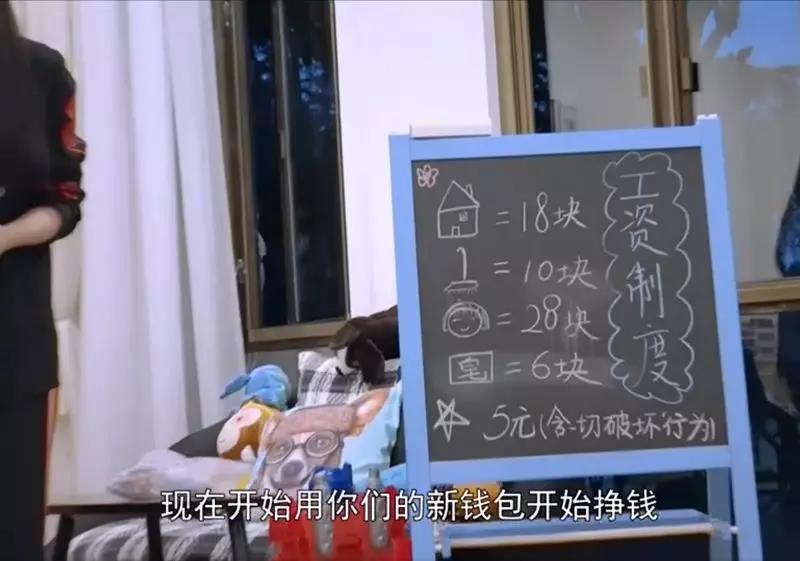 工资制度
=18块
=10块
=28块
皂=6块
5元(含一切破坏行为)
现在开始用你们的新钱包开始挣钱